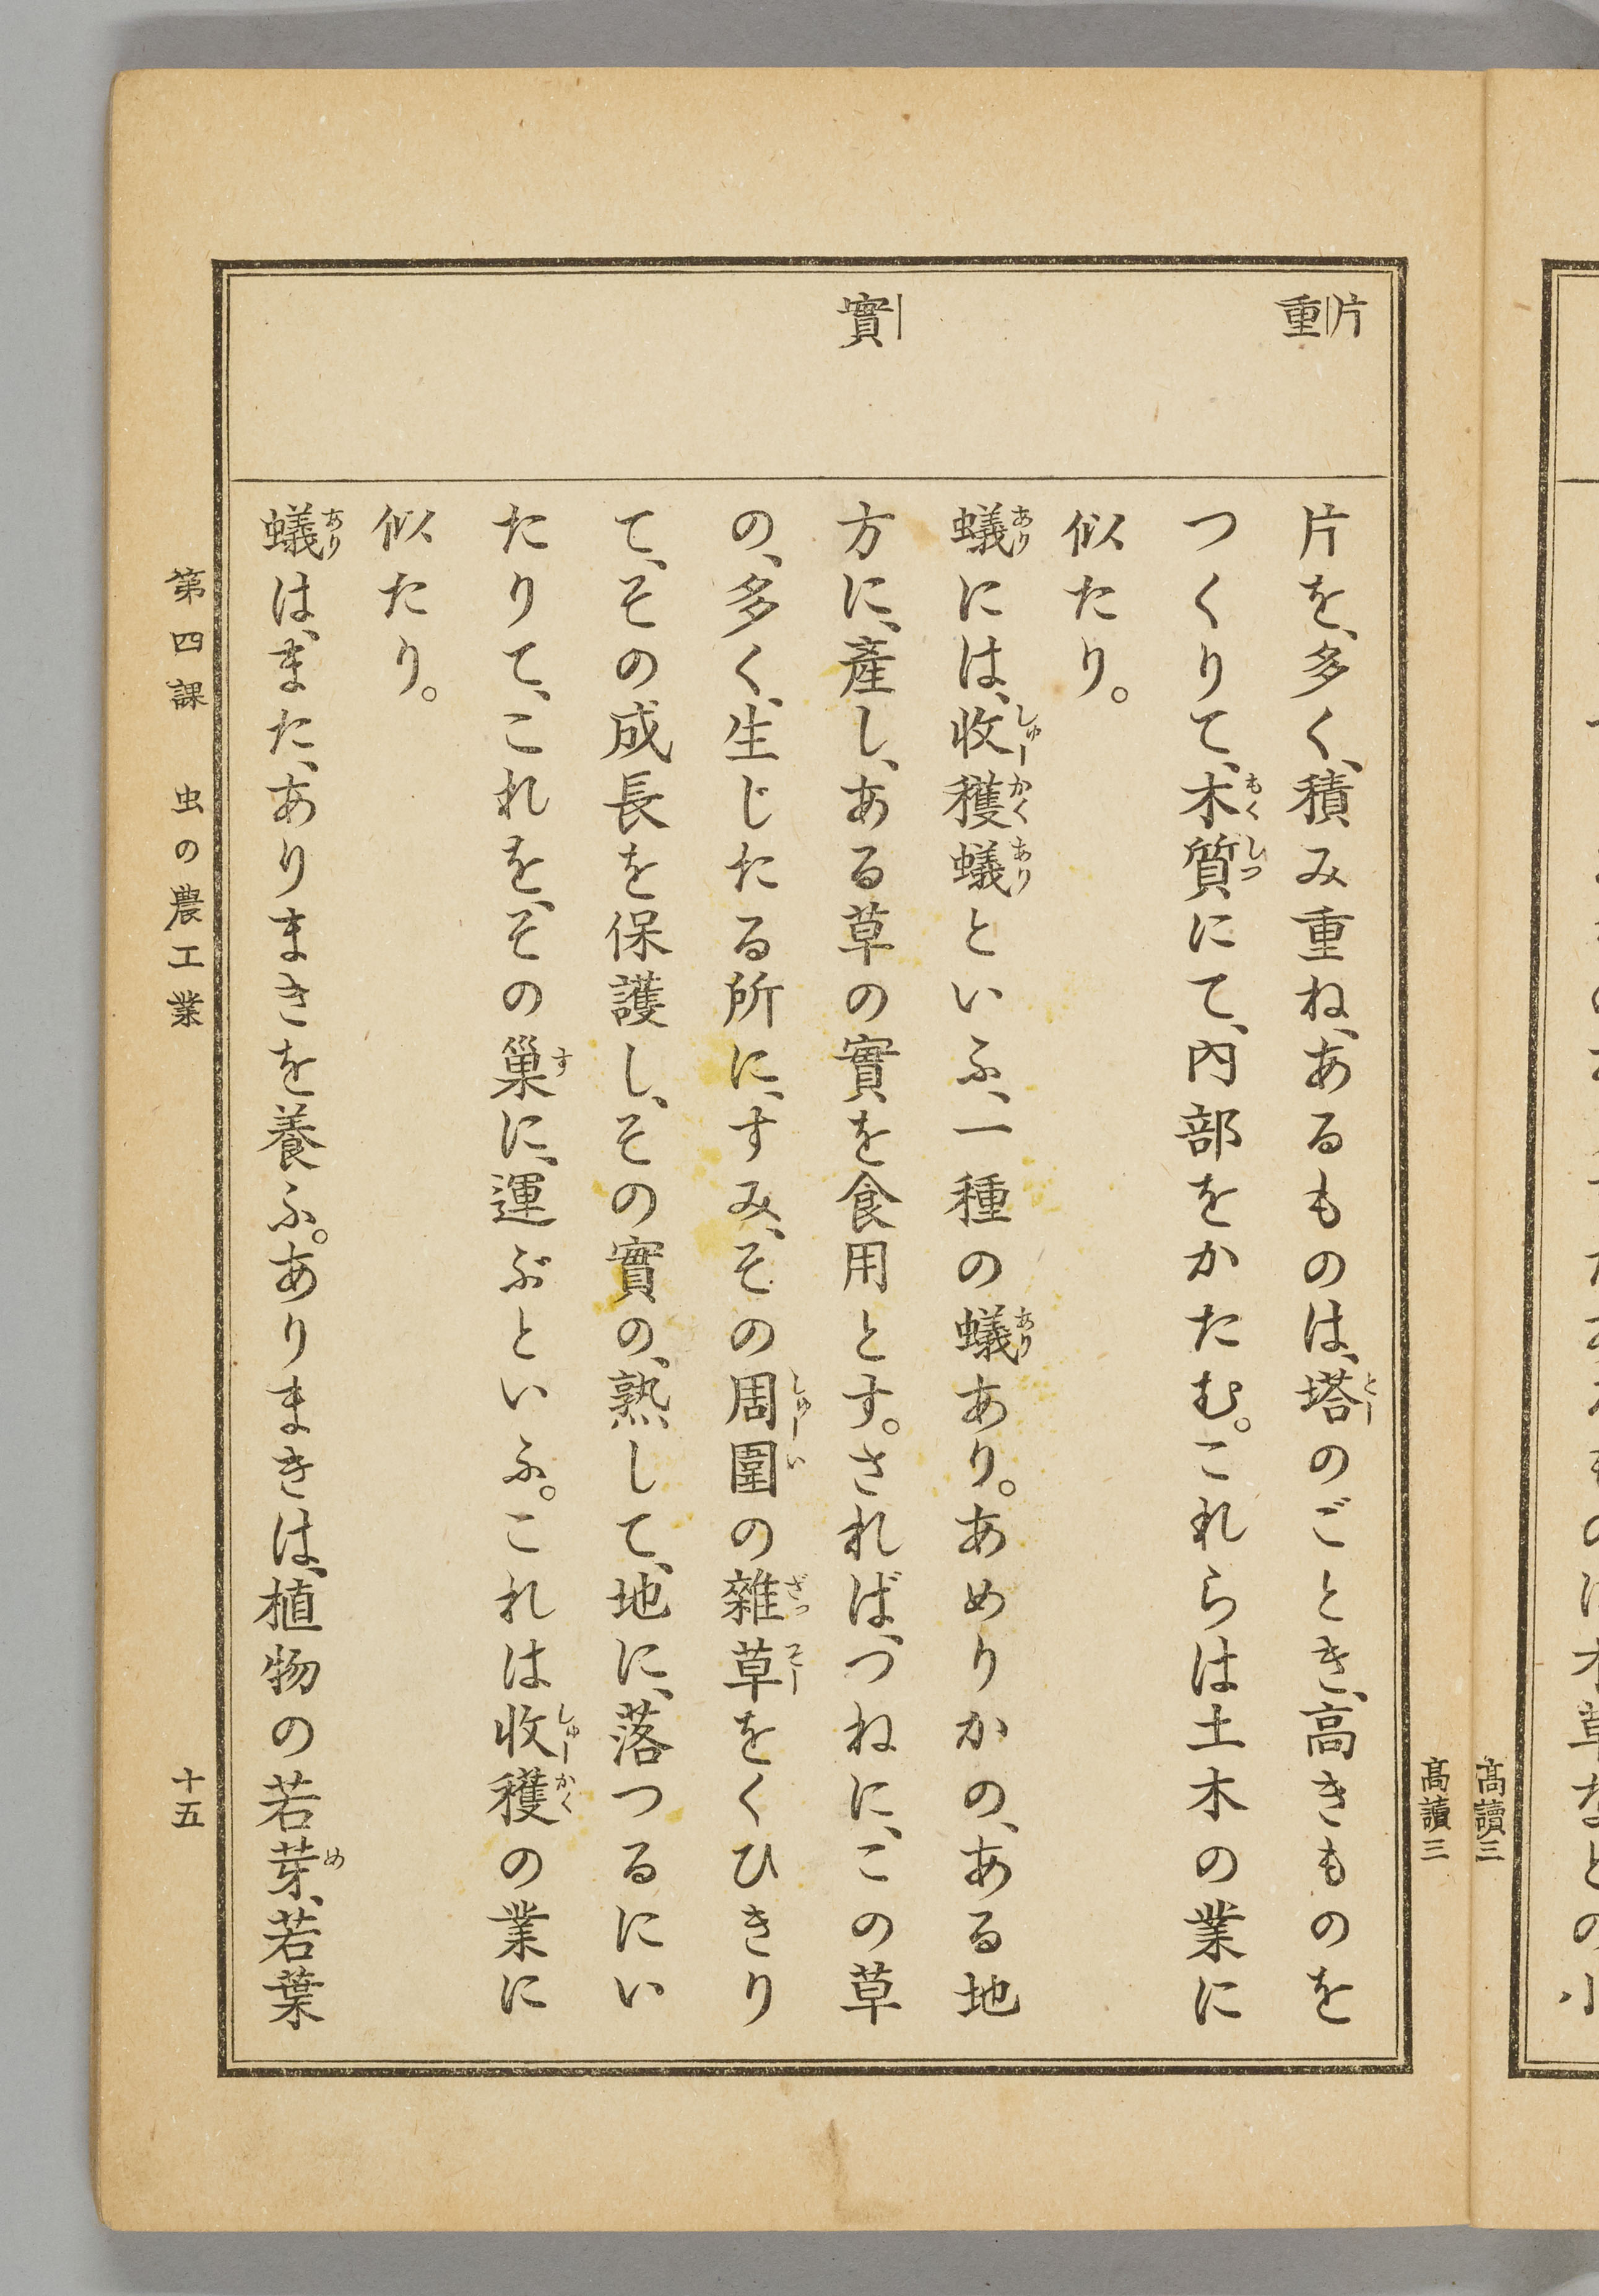 片
重
實
片を、多く、積み重ね、あるものは、塔のごとき、高きものを
つくりて、木質にて、内部をかたむ。これらは土木の業に
似たり。
蟻には、收穫蟻といふ、一種の蟻あり。あめりかの、ある地
方に、產し、ある草の實を食用とす。されば、つねに、この草
の、多く、生じたる所に、すみ、その周圍の雜草をくひきり
て、その成長を保護し、その實の、熟して、地に、落つるにい
たりて、これを、その巢に、運ぶといふ。これは收穫の業に
似たり。
蟻は、また、ありまきを養ふ。ありまきは、植物の若芽、若葉
第四課 虫の農工業
十五
高讀三
高讀三